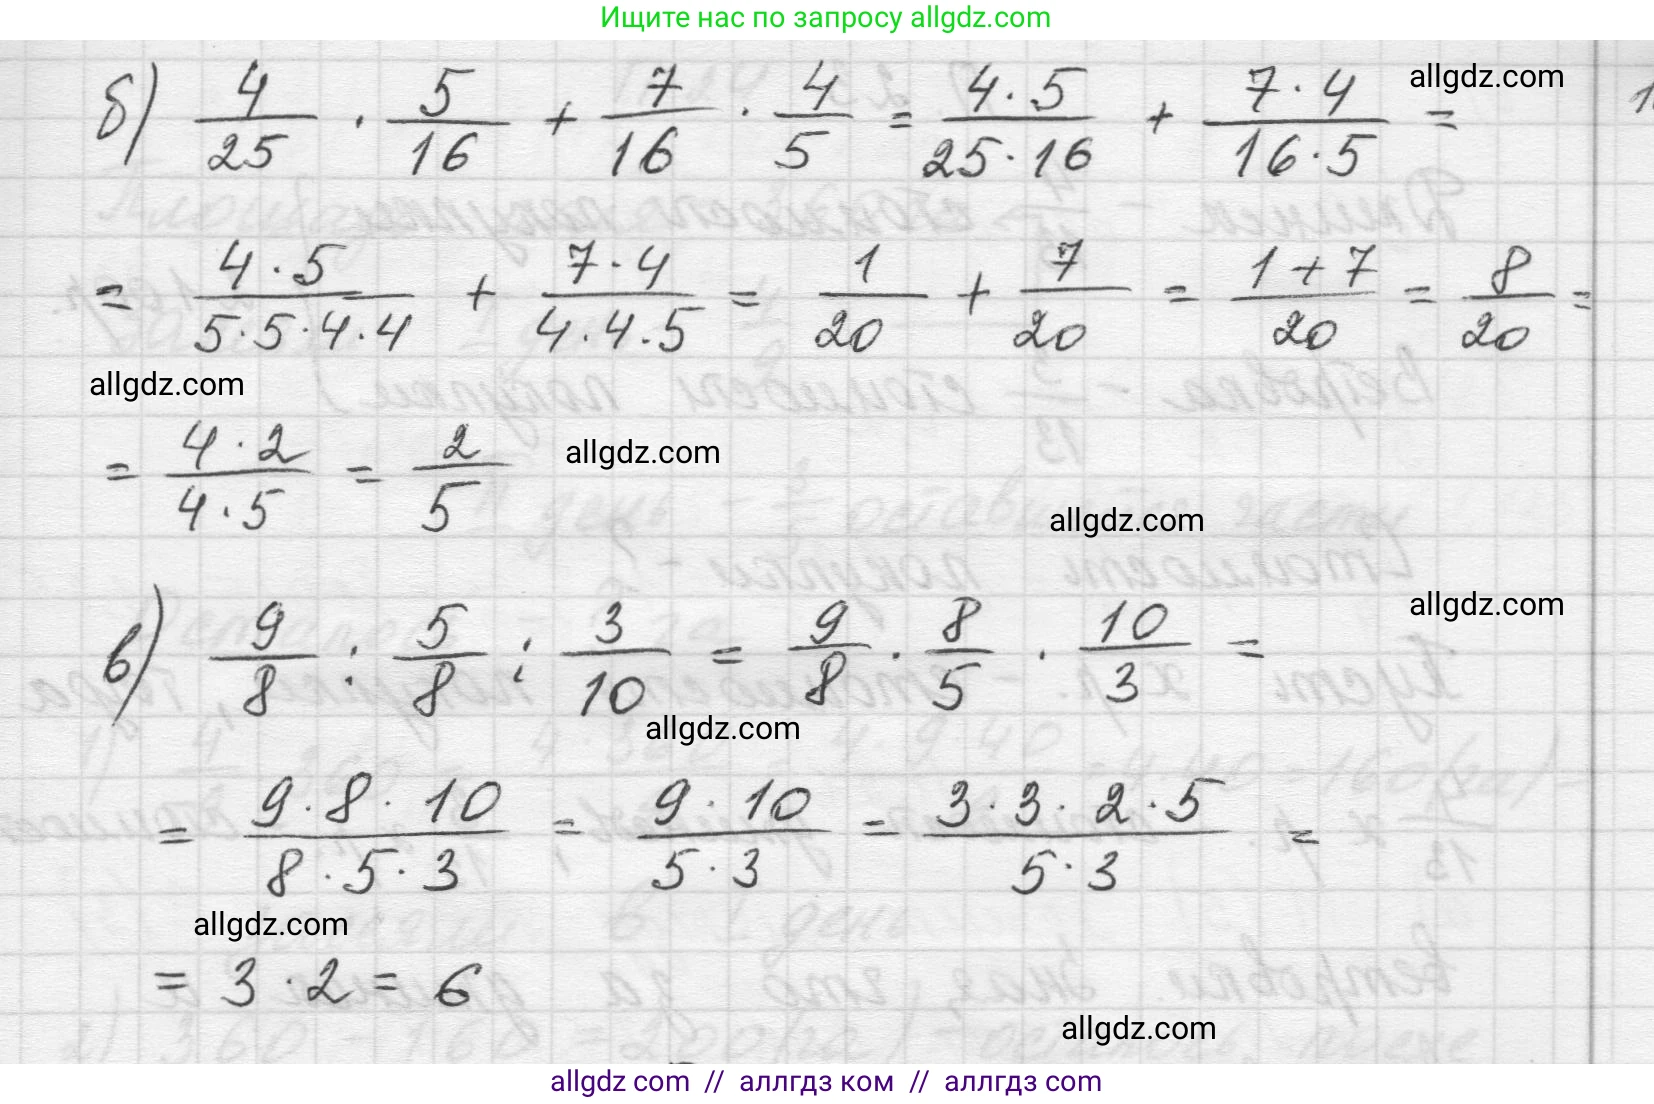 Ищите нас по запросу allgdz.com
allgdz.com
б) 4/25 · 5/16 + 7/16 · 4/5 = 4·5/25·16 + 7·4/16·5 =
= 4·5/5·5·4·4 + 7·4/4·4·5 = 1/20 + 7/20 = 1+7/20 = 8/20 =
allgdz.com
= 4·2/4·5 = 2/5
allgdz.com
allgdz.com
allgdz.com
в) 9/8 : 5/8 : 3/10 = 9/8 · 8/5 · 10/3 =
allgdz.com
= 9·8·10/8·5·3 = 9·10/5·3 = 3·3·2·5/5·3 =
allgdz.com
= 3·2 = 6
allgdz.com
allgdz com // аллгдз ком // аллгдз com